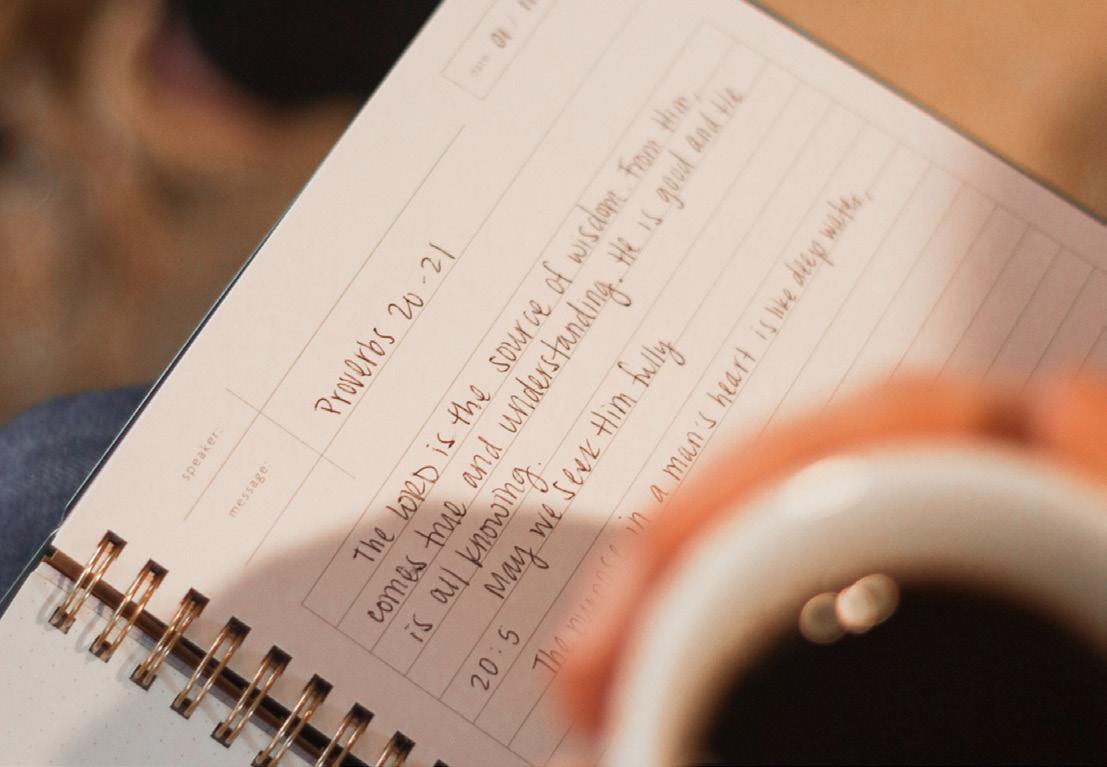 date 04 /
speaker:
message: Proverbs 20-21
The LORD is the source of wisdom. From Him,
comes true and understanding. He is good and He
is all knowing.
May we seek Him fully
20:5
The purpose in a man's heart is like deep water,